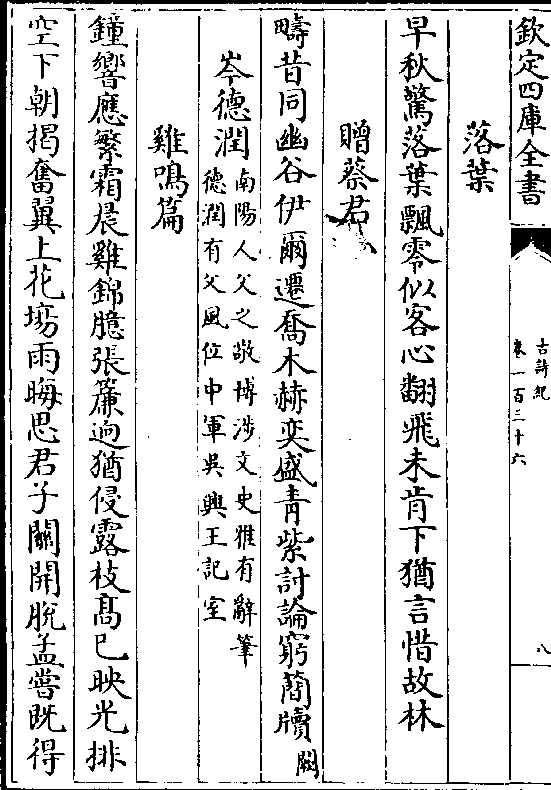 欽定四庫全書
古詩紀
卷一百三十六
八
落葉
早秋驚落葉飄零似客心翻飛未肯下猶言惜故林
贈蔡君
疇昔同幽谷伊爾遷喬木赫奕盛青紫討論窮簡牘闕
岑德潤
南陽人父之敬博涉文史雅有辭筆
德潤有父風位中軍吳興王記室
雞鳴篇
鐘響應繁霜晨雞錦臆張簾逈猶侵露枝髙已映光排
空下朝揭奮翼上花塲雨晦思君子關開脫孟嘗既得